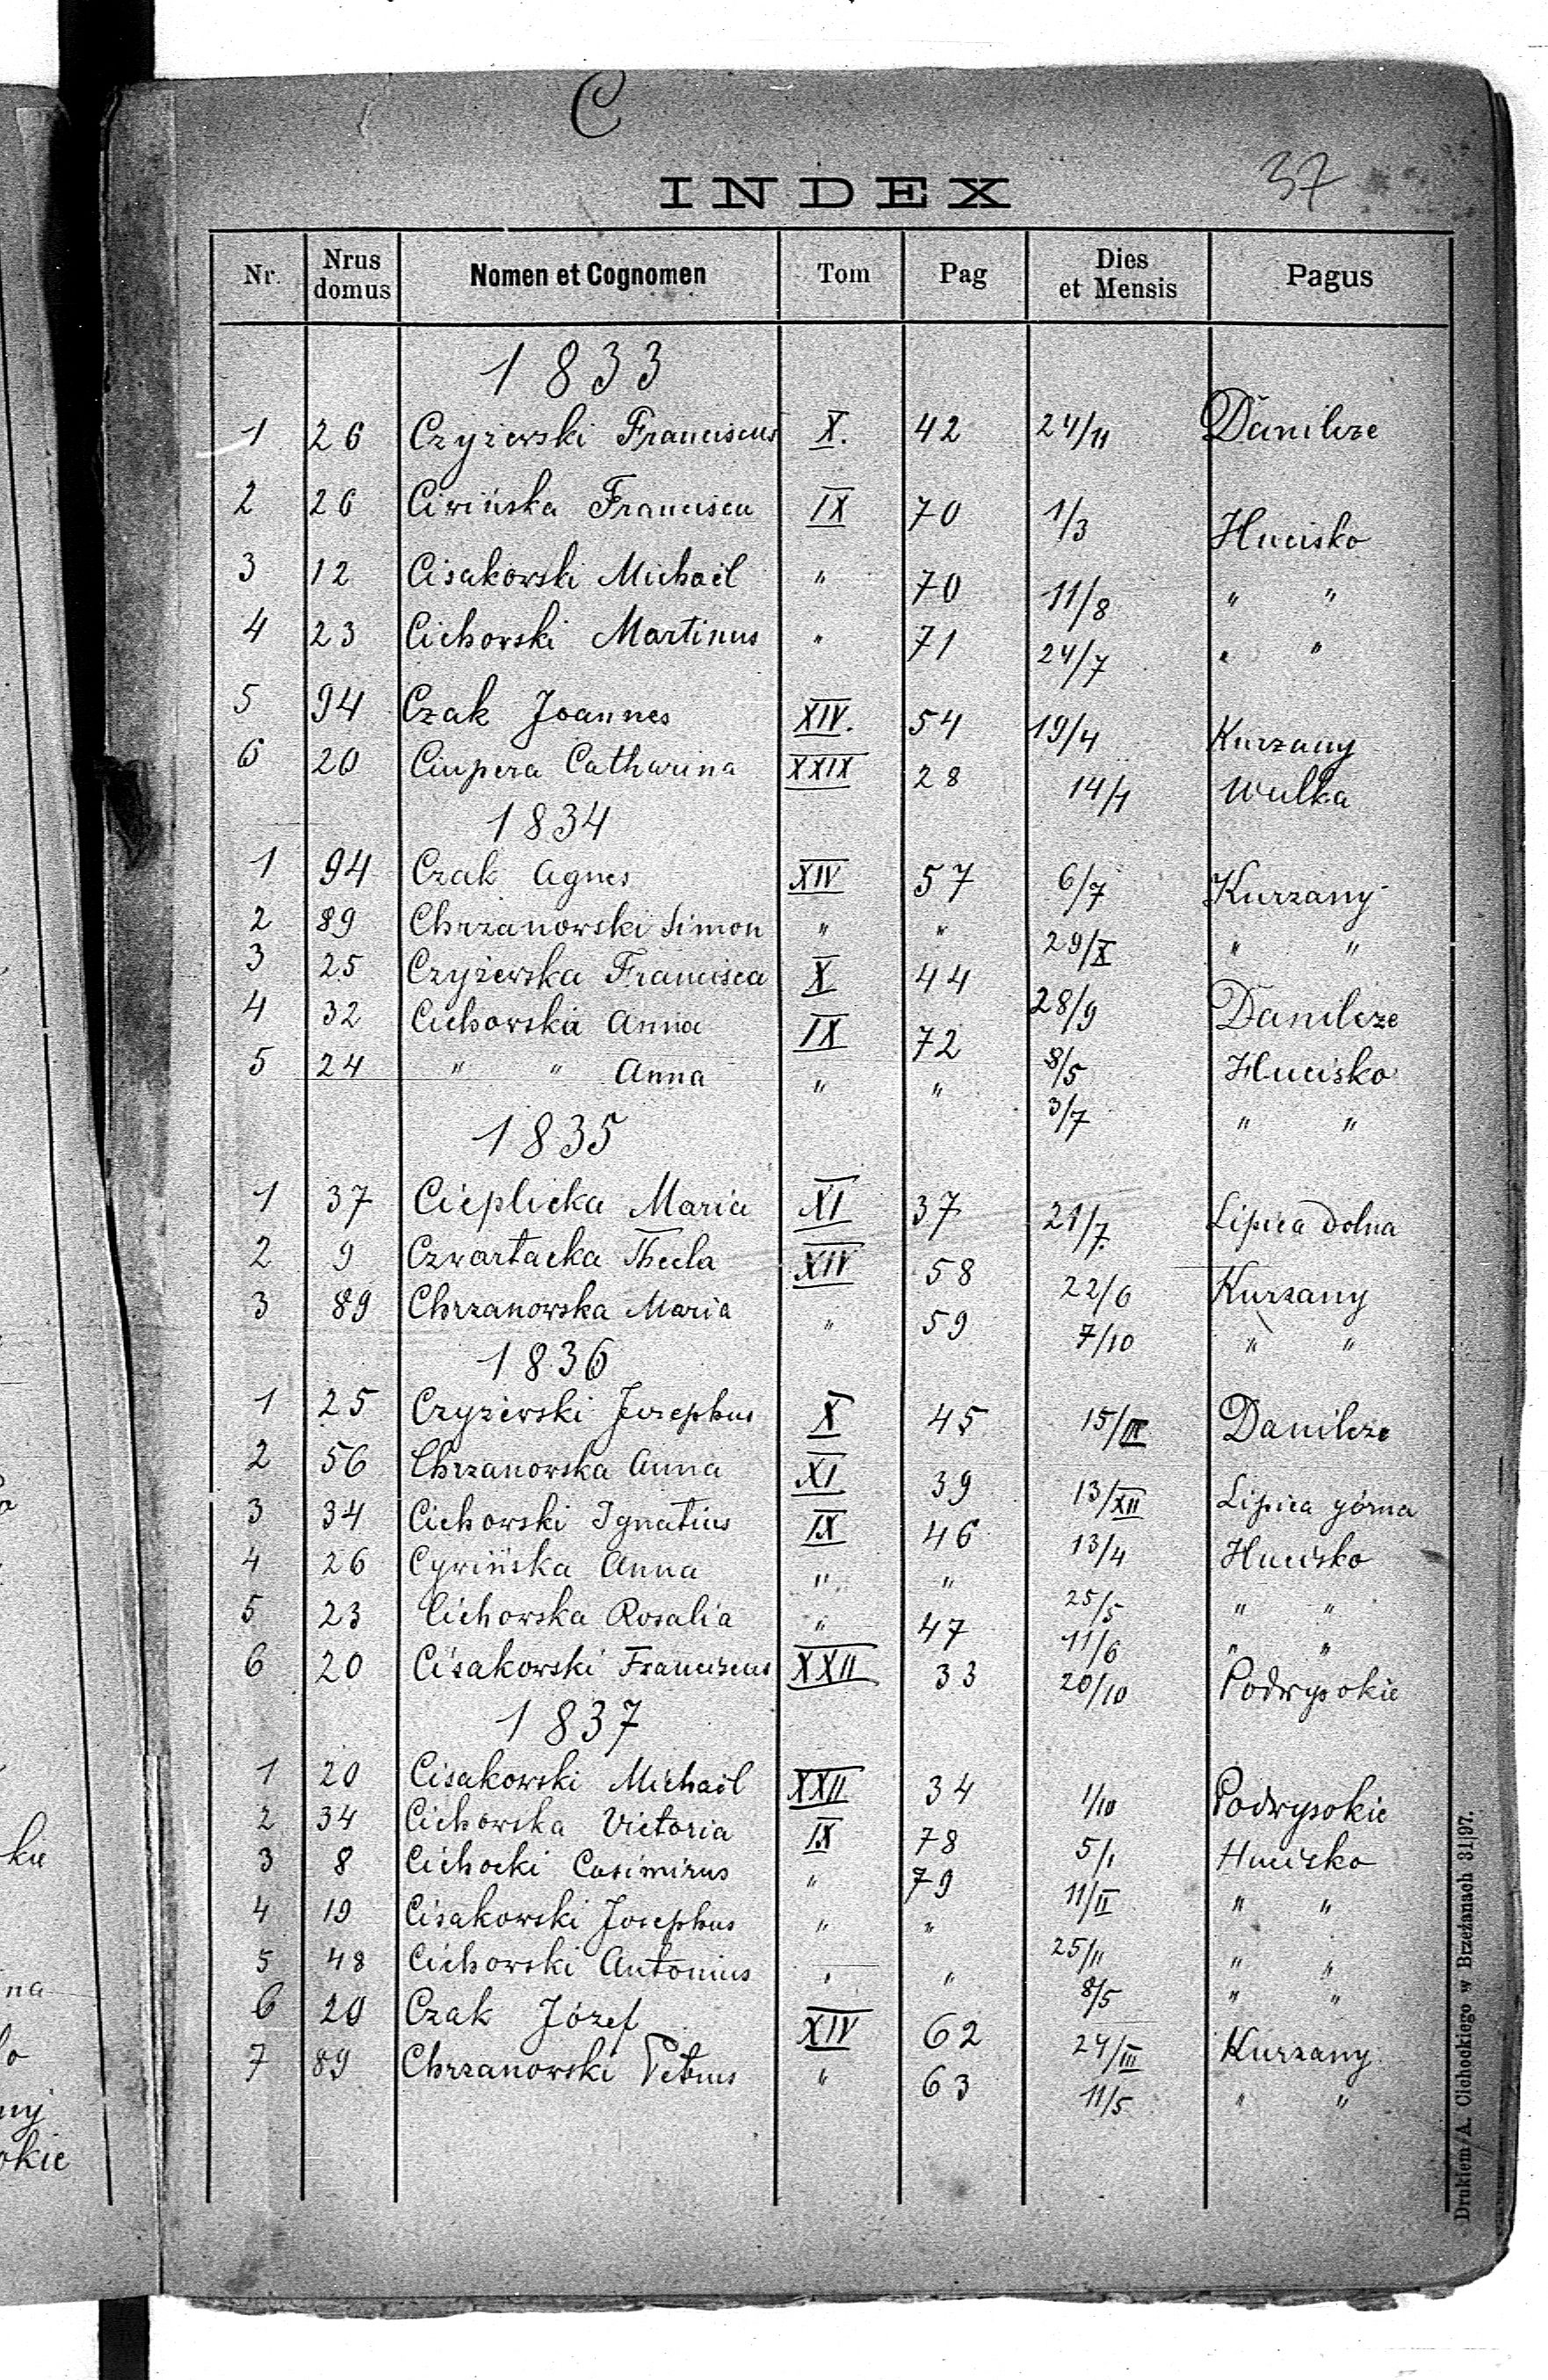 C
37
INDEX
Nr. Nrus domus Nomen et Cognomen Tom Pag Dies et Mensis Pagus
1833
1 26 Czyżewski Franciscus X. 42 24/11 Danilcze
2 26 Ciwińska Francisca IX 70 1/3 Hucisko
3 12 Cisakowski Michaël " 70 11/8 " "
4 23 Cichowski Martinus " 71 24/7 " "
5 94 Czak Joannes XIV. 54 19/4 Kurzany
6 20 Ciupera Catharina XXIX 28 14/1 Wulka
1834
1 94 Czak Agnes XIV 57 6/7 Kurzany
2 89 Chrzanowski Simon " " 29/X " "
3 25 Czyżewska Francisca X 44 28/9 Danilcze
4 32 Cichowska Anna IX 72 8/5 Hucisko
5 24 " " Anna " " 3/7 " "
1835
1 37 Cieplicka Maria XI 37 21/7. Lipica dolna
2 9 Czwartacka Thecla XIV 58 22/6 Kurzany
3 89 Chrzanowska Maria " 59 7/10 " "
1836
1 25 Czyżewski Josephus X 45 15/III Danilcze
2 56 Chrzanowska Anna XI 39 13/XII Lipica górna
3 34 Cichowski Ignatius IX 46 13/4 Hucisko
4 26 Cywińska Anna " " 25/5 " "
5 23 Cichowska Rosalia " 47 11/6 " "
6 20 Cisakowski Franciscus XXII 33 20/10 Podwysokie
1837
1 20 Cisakowski Michaël XXII 34 1/10 Podwysokie
2 34 Cichowska Victoria IX 78 5/1 Hucisko
3 8 Cichocki Casimirus " 79 11/II " "
4 19 Cisakowski Josephus " " 25/11 " "
5 48 Cichowski Antonius " " 8/5 " "
6 20 Czak Józef XIV 62 24/III Kurzany
7 89 Chrzanowski Petrus " 63 11/5 " "
Drukiem A. Cichockiego w Brzeżanach 31|97.
kie
na
o
ny
okie